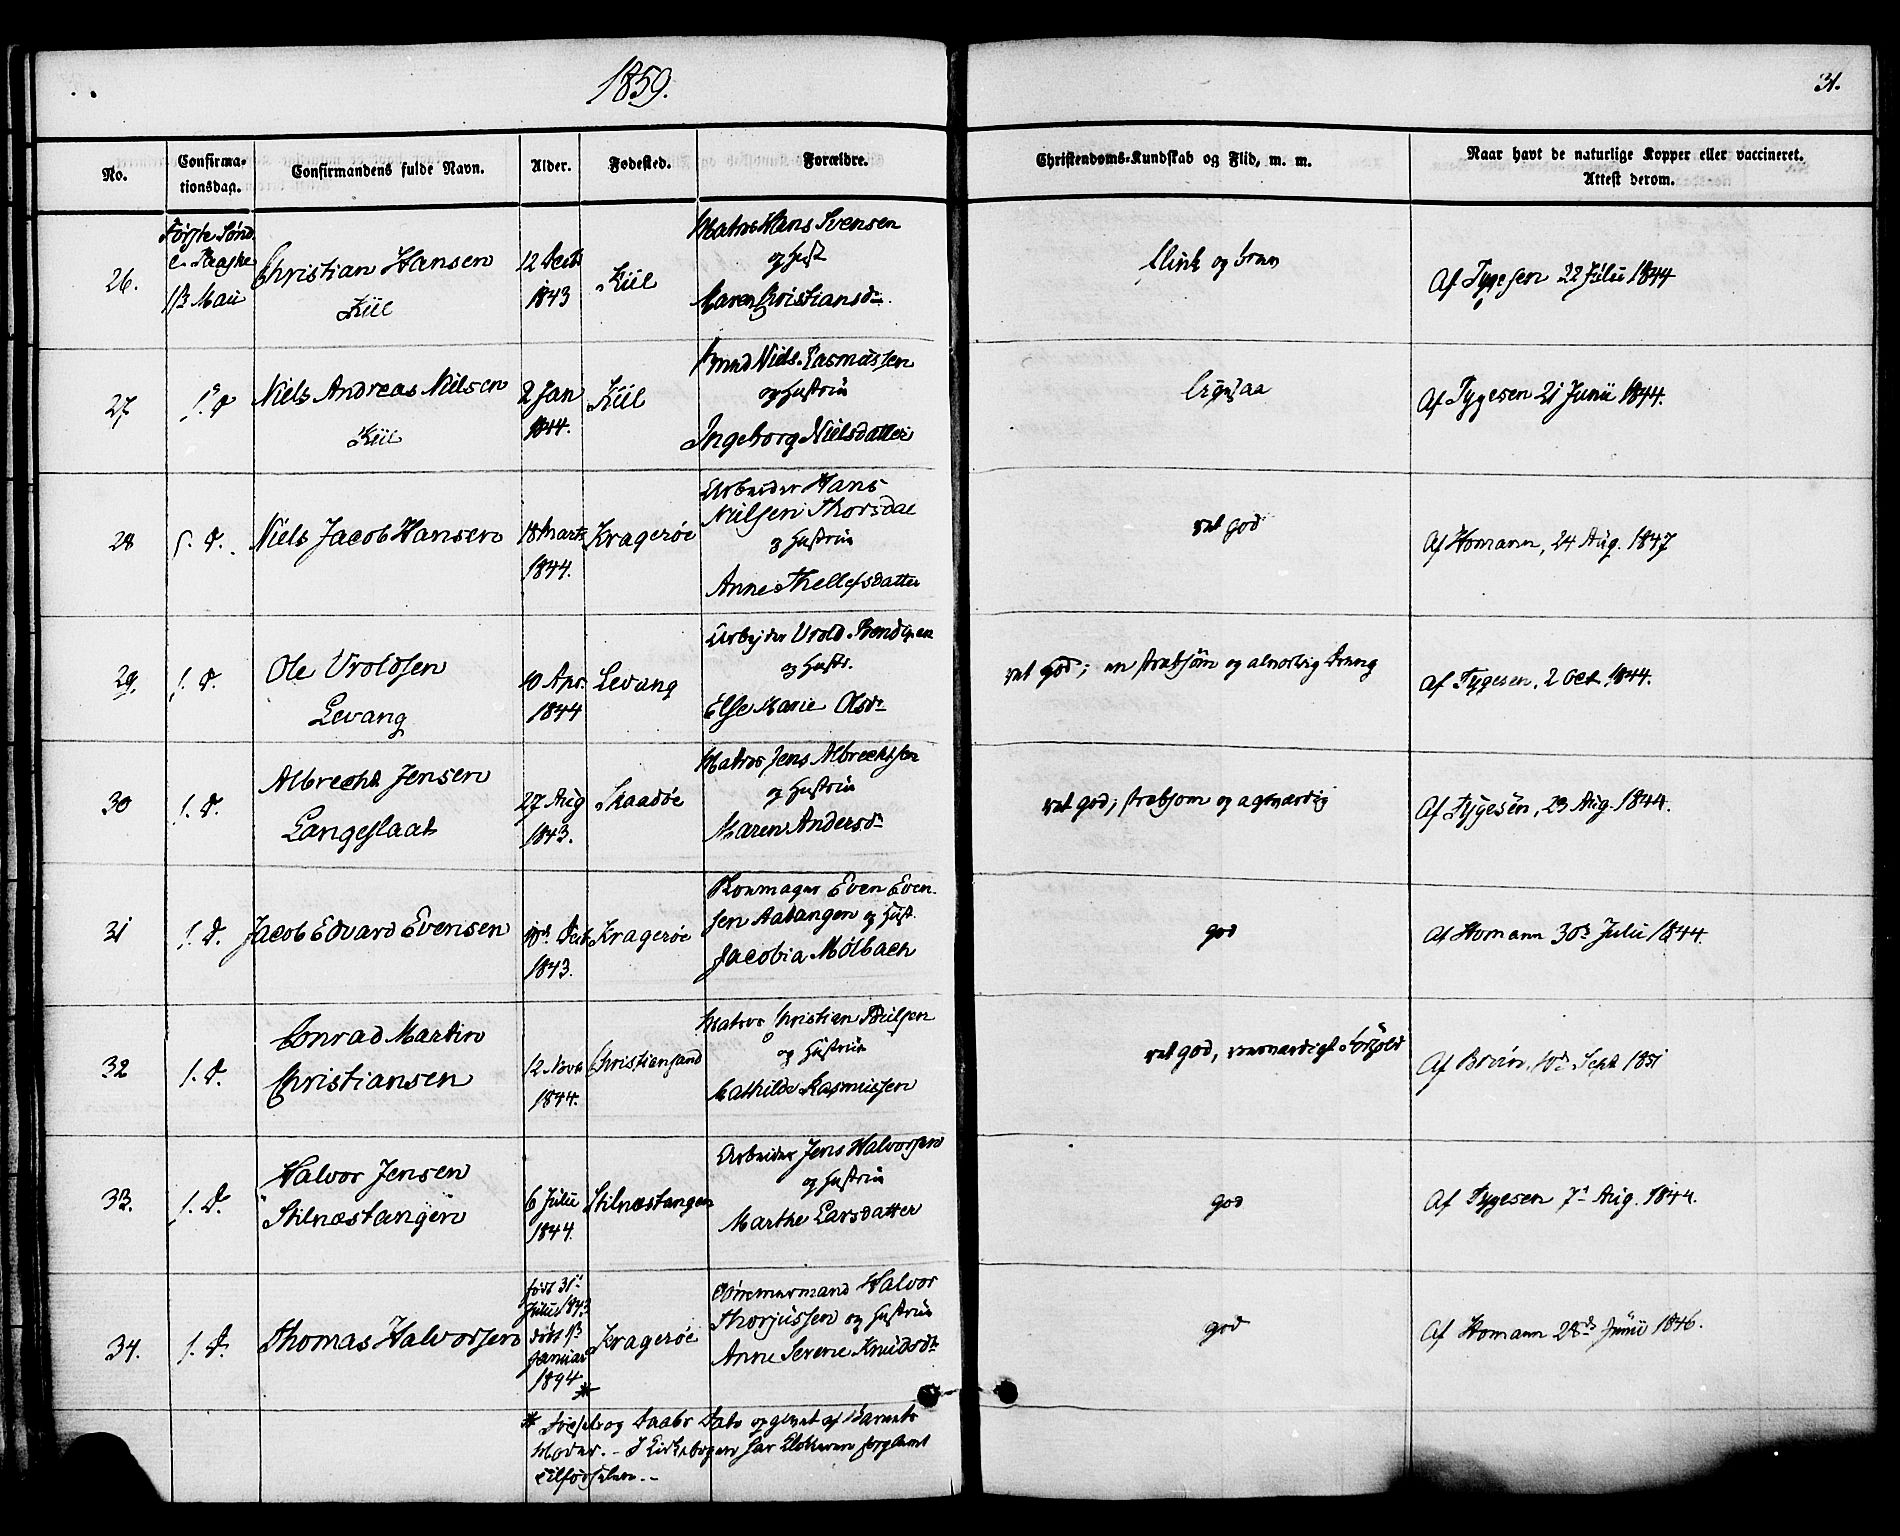 1859.
31.
No.
Confirma-
tionsdag.
Confirmandens fulde Navn.
Alder.
Fødested.
Forældre.
Christendoms-Kundskab og Flid, m. m.
Naar havt de naturlige Kopper eller vaccineret.
Attest derom.
26.
Første Sønd.
e. Paaske
1ste Maii
Christian Hansen
Kiil
12 Decb
1843
Kiil
Matros Hans Svensen
og Hust
Maren Christiansdr.
flink og brav
Af Tygesen 22 Julii 1844
27
s. D
Niels Andreas Nielsen
Kiil
2 Jan
1844.
Kiil
Niels Rasmussen
og Hustrue
Ingeborg Nielsdatter
ligesaa
Af Tygesen 21 Junii 1844.
28
s. D.
Niels Jacob Hansen
18 Marts
1844.
Kragerøe
Arbeider Hans
Nielsen Thorsdal
og Hustrue
Anne Thellefsdatter
ret god
Af Homann, 24 Aug. 1847
29
s. D.
Ole Uroldsen
Levang
10 Apr.
1844
Levang
Arbejder Urold Bendixen
og Hustr.
Else Marie Olsdr
ret god; en stræbsom og alvorlig Dreng
Af Tygesen, 2 Oct. 1844.
30
s. D.
Albrecht Jensen
Langeslaat
27 Aug
1843.
Skaadøe
Matros Jens Albrechtsen
og Hustrue
Maren Andersdr
ret god; stræbsom og agtværdig
Af Tygesen, 23 Aug. 1844.
31
s. D.
Jacob Edvard Evensen
Decb
1843.
Kragerøe
Skomager Even Even-
sen Aatangen og Hust.
Jacobia Mølbach
god
Af Homann 30te Julii 1844.
32
s. D.
Conrad Martin
Christiansen
12 Novb
1844.
Christiansand
Matros Christian Nielsen
og Hustrue
Mathilde Rasmussen
ret god, roesværdigt Forhold
Af 10de Sept 1851
33.
s. D.
Halvor Jensen
Stilnæstangen
6 Julii
1844.
Stilnæstangen
Arbeider Jens Halvorsen
og Hustrue
Marthe Larsdatter
god
Af Tygesen 7de Aug. 1844.
34.
s. D.
Thomas Halvorsen
født 31te
Julii 1843
døbt 1ste
Januar
1844
*
Kragerøe
Tømmermand Halvor
Thorjussen og Hustrue
Anne Serene Knudsdr
god
Af Homann 28de Junii 1846.
* Fødsels og Daabs Dato opgivet af Barnets
Moder. - I Kirkebogen har Klokkeren forglemt
Tilførselen. -